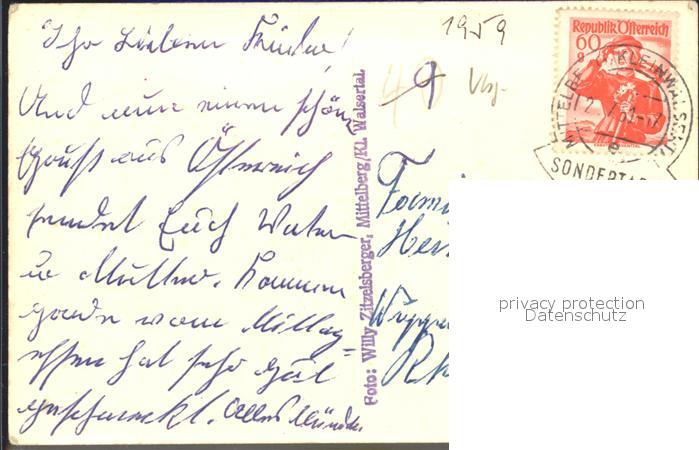 Ihr Lieben Kinder!
Und nun einen schönen
Gruß aus Österreich
sendet Euch Vater
u Mutter. Kommen
gerade vom Mittag
essen hat sehr gut
geschmeckt. Alles
1959
Foto: Willy Zitzelsberger, Mittelberg/Kl. Walsertal
Republik Österreich
60
g
MITTELBE KLEINWALSERT
SONDERTA
Fami
Hei
Wuppe
Rh
privacy protection
Datenschutz